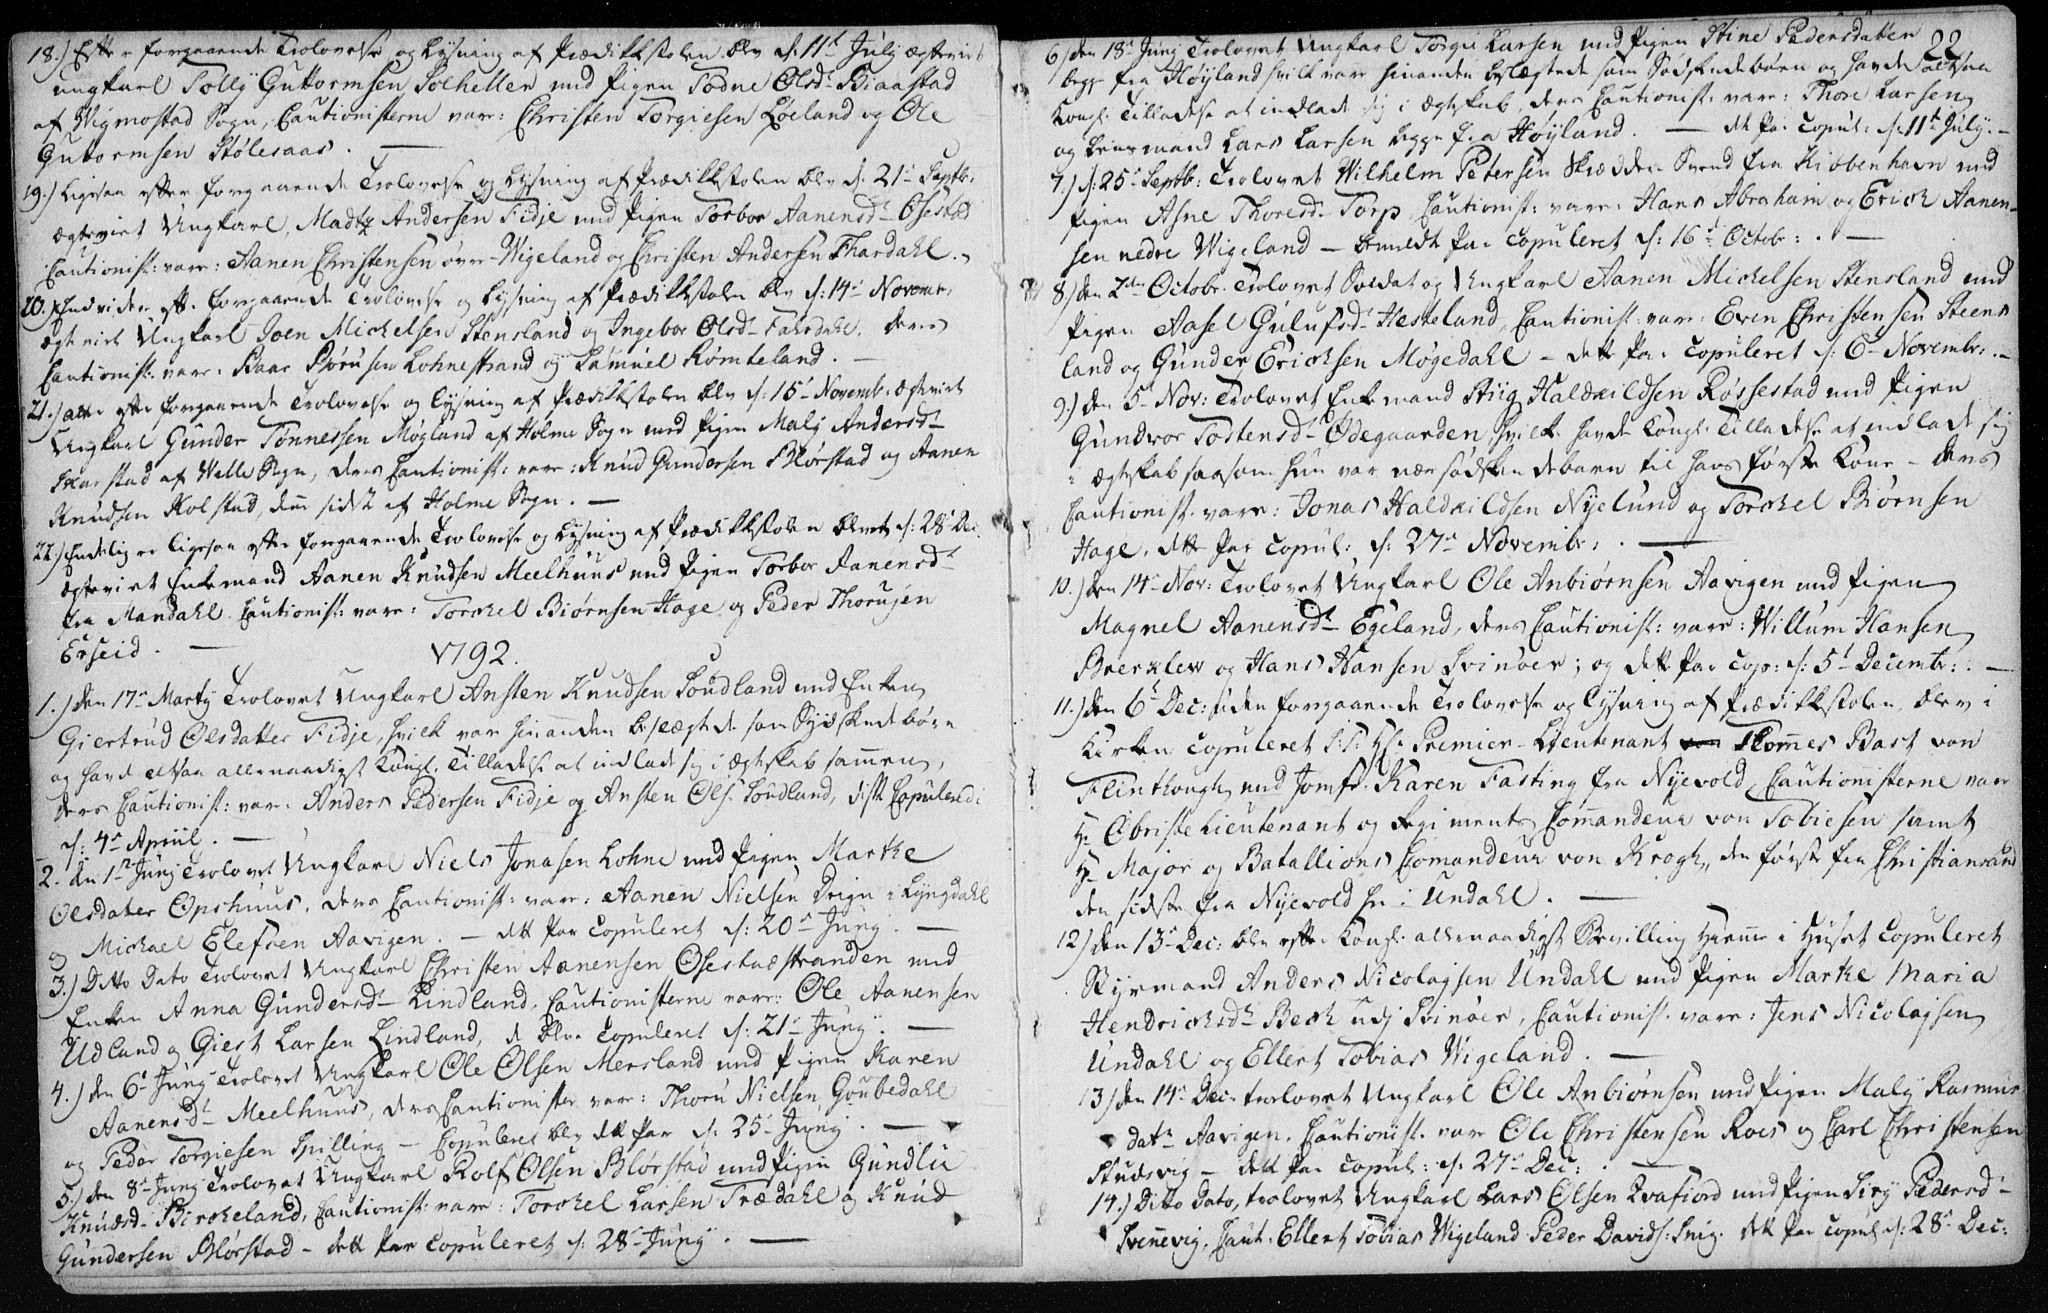 18.) Efter forgaaende Trolovelse og Lysning af Prædikkestolen blev d: 11te July ægteviet
ungkarl Tolly Guttormsen Solhellen med Pigen Todne Olsdr Biaastad
af Wigmostad Sogn, Cautionisterne vare: Christen Torgiesen Löeland og Ole
Guttormsen Stølesaas. —
19.) Ligesaa efter forgaaende Trolovelse og Lysning af Prædikkestolen blev d: 21de Septbr:
ægteviet Ungkarl, Madtz Andersen Fidje med Pigen Torbor Aanensdr Osestad
Cautionist: vare: Aanen Christensen øvre Wigeland og Christen Andersen Fhardahl. —
20.) Endvidere efter forgaaende Trolovelse og Lysning af Prædikkestolen blev d: 14de Novembr:
ægteviet Ungkarl Joen Mickelsen Stensland og Ingebor Olsdr Fahrdahl, deres
Cautionist: vare: Baar Siørnsen Lohnestrand og Samuel Rømteland. —
21.) efter forgaaende Trolovelse og Lysning af Prædikkestolen blev d: 15de Novembr: ægteviet
Ungkarl Gunder Tønnessen Møgland af Holme Sogn med Pigen Maly Andersdr
Skarstad af Walle Sogn, deres Cautionist: vare: Knud Gundersen Blørstad og Aanen
Knudsen Kolstad, den sidste af Holme Sogn. —
22.) Endelig er ligesaa efter forgaaende Trolovelse og Lysning af Prædikkestolen blevet d: 28de Dec.
ægteviet Enkemand Aanen Knudsen Meelhuus med Pigen Torbor Aanensdr
fra Mandahl. Cautionist: vare: Torckel Biørnsen Hage og Peder Thorujen
Erseid. —
1792.
1.) den 17de Marty Trolovet Ungkarl Ansten Knudsen Loudland med Enken
Giertrud Olsdatter Fidje, hvilke var hinanden beslægtede som Sødskendebørn
og havde altsaa allernaadigst Kongl: Tilladelse at indlade sig i ægteskab sammen,
deres Cautionist: var: Anders Pedersen Fidje og Ansten Ols: Loudland, disse Copuleredes
d: 4de Apriil. —
2. den 1te Juny Trolovet Ungkarl Niels Jonasen Lohne med Pigen Marthe
Olsdatter Opshuus, deres Cautionist: vare: Aanen Nielsen Drign i Lyngdahl
og Mickael Elefsen Aavigen. — dette Par Copuleret d: 20de Juny. —
3.) Ditto Dato Trolovet Ungkarl Christen Aanensen Osestadstranden med
Enken Anna Gundersdr Lindland. Cautionisterne vare: Ole Aanensen
Udland og Giest Larsen Lindland, de blev Copuleret d: 21de Juny. —
4.) den 6te Juny Trolovet Ungkarl Ole Olsen Mersland med Pigen Karen
Aanensdr Meelhuus, deres Cautionister var: Thoru Nielsen Goubedahl
og Peder Torgiesen Spilling — Copuleret blev dette Par d: 25de Juny. —
5.) den 8de Juny Trolovet Ungkarl Rolf Olsen Blørstad med Pigen Gundlie
Knudsdr Birckeland, Cautionist: vare: Torckel Larsen Trædahl og Knud
Gundersen Blørstad — dette Par Copuleret d: 28de Juny. —
22
6.) den 18de Juny Trolovet Ungkarl Torgie Larsen med Pigen Stine Pedersdatter
begge fra Høyland hvilke vare hinanden beslægtede som Sødskendebørn og havde altsaa
Kongl: Tilladelse at indlade sig i ægteskab, deres Cautionist: vare: Thore Larsen
og Lensmand Lars Larsen begge fra Høyland. — dette Par Copul: d: 11te July. —
7.) d: 25de Septbr: Trolovet Wilhelm Petersen Skrædder Svend fra Kiøbenhavn med
Pigen Asne Thoresdr Torp, Cautionist: vare: Hans Abraham og Erich Aanen-
sen nedre Wigeland — bemeldte Par Copuleret d: 16de Octobr: . —
8.) den 2den Octobr. Trolovet Soldat og Ungkarl Aanen Mickelsen Stensland med
Pigen Aasel Gulufsdr Hesteland, Cautionist: var: Even Christensen Steens
land og Gunder Ericksen Møgedahl — dette Par Copuleret d: 6te Novembr: . —
9.) den 5te Nov: Trolovet Enkemand Stiig Haldkildsen Røssestad med Pigen
Gundvor Tostensdr Ødegaarden, hvilke havde Kongl: Tilladelse at indlade sig
i ægteskab saasom hun var nærsødskendebarn til hans første Kone — deres
Cautionist. vare: Jonas Haldkildsen Nyelund og Torckel Biørnsen
Hage, dette Par Copul: d: 27de Novembr: . —
10.) den 14de Nov: Trolovet Ungkarl Ole Anbiørnsen Aavigen med Pigen
Magnel Aanensdr Egeland, deres Cautionist: vare: Willum Hansen
Brerklew og Hans Hansen Svinøer; og dette Par Cop: d: 5te Decembr: . —
11.) den 6te Dec: uden forgaaende Trolovelse og Lysning af Prædikkestolen, blev i
Kirken Copuleret S: T: Hr Premier-Lieutenant Thomes Bast von
Flinthough med Jomfr. Karen Fasting fra Nyevold, Cautionisterne var
Hr Obriste Lieutenant og Regiments Comandeur von Tobiesen samt
Hr Major og Batallions Comandeur von Krogh, den første fra Christiansand
den sidste fra Nyevold her i Undahl. —
12.) den 13de Dec: blev efter Kongl: allernaadigst Bevilling hiemme i Huset Copuleret
Styrmand Anders Nicolaysen Undahl med Pigen Marthe Maria
Hendrichsdr Beck udj Svinøer, Cautionist. vare: Jens Nicolajsen
Undahl og Ellert Tobias Wigeland. —
13.) den 14de Dec. trolovet Ungkarl Ole Anbiørnsen med Pigen Maly Rasmus
datr Aavigen. Cautionist. var Ole Christensen Roes og Carl Christensen
Studsvig — dette Par Copul: d: 27de Dec: . —
14.) Ditto Dato, trolovet Ungkarl Lars Olsen Qvafiord med Pigen Siry Pedersdr
Svennevig. Caut: Ellert Tobias Wigeland Peder Davids: Snig. dette Par Copul d: 28de Dec: